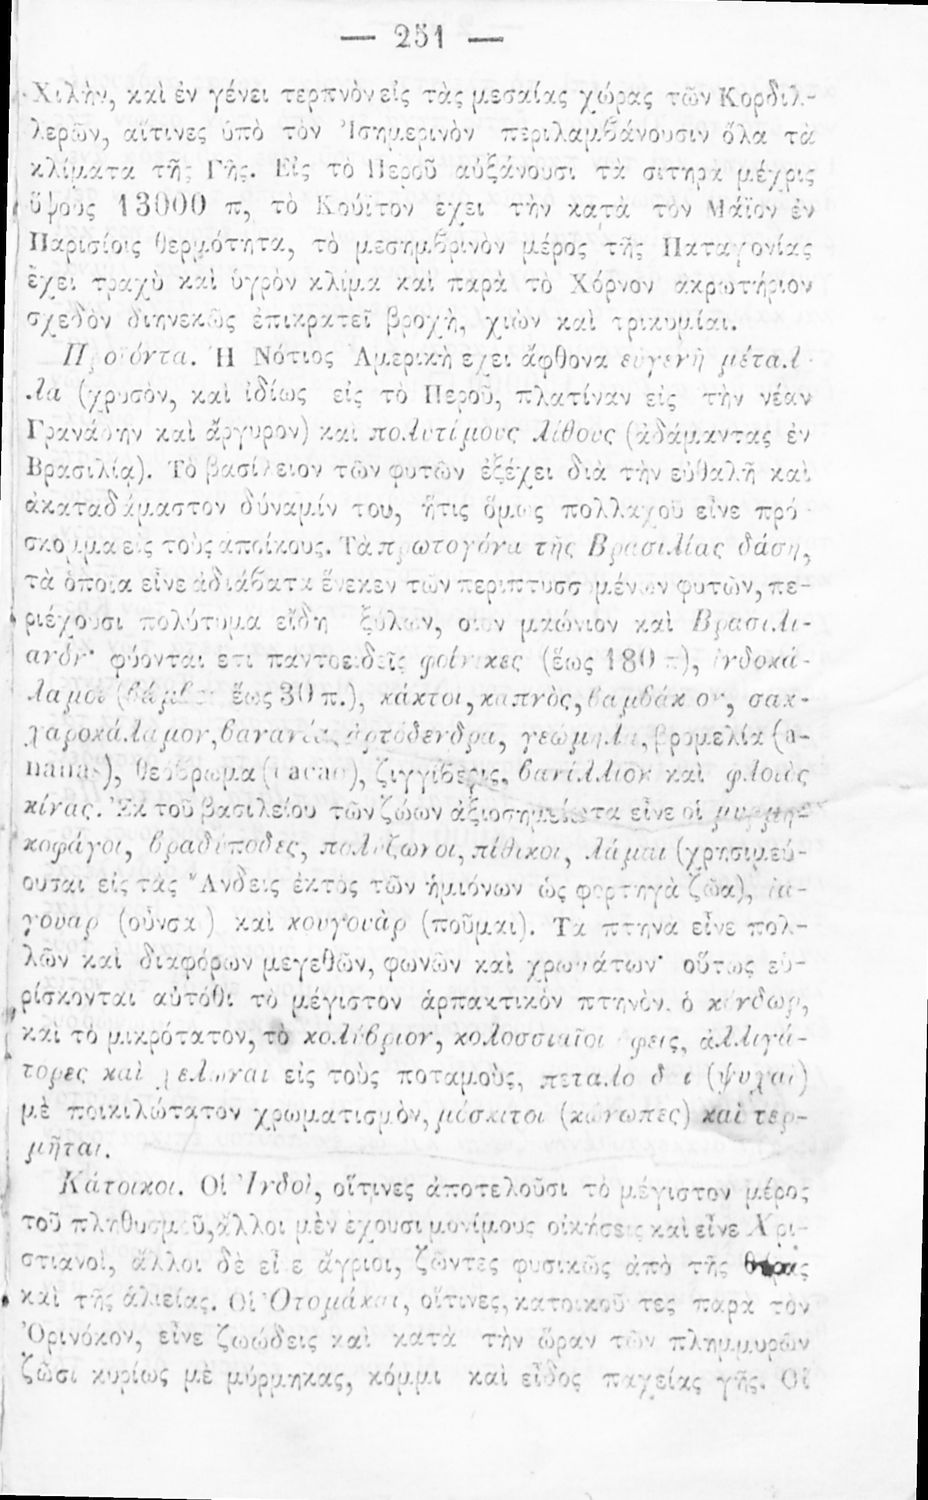 — 251 —
Χιλὴν, καὶ ἐν γένει τερπνὸν εἰς τὰς μεσαίας χώρας τῶν Κορδιλ-
λερῶν, αἵτινες ὑπὸ τὸν Ἰσημερινὸν περιλαμβάνουσιν ὅλα τὰ
κλίματα τῆς Γῆς. Εἰς τὸ Περοῦ αὐξάνουσι τὰ σιτηρὰ μέχρις
ὕψους 13000 π, τὸ Κούϊτον ἔχει τὴν κατὰ τὸν Μάϊον ἐν
Παρισίοις θερμότητα, τὸ μεσημβρινὸν μέρος τῆς Παταγονίας
ἔχει τραχὺ καὶ ὑγρὸν κλίμα καὶ παρὰ τὸ Χόρνον ἀκρωτήριον
σχεδὸν διηνεκῶς ἐπικρατεῖ βροχὴ, χιὼν καὶ τρικυμίαι.
Προϊόντα. Ἡ Νότιος Ἀμερικὴ ἔχει ἄφθονα εὐγενῆ μέταλ-
λα (χρυσὸν, καὶ ἰδίως εἰς τὸ Περοῦ, πλατίναν εἰς τὴν νέαν
Γρανάδην καὶ ἄργυρον) καὶ πολυτίμους λίθους (ἀδάμαντας ἐν
Βρασιλίᾳ). Τὸ βασίλειον τῶν φυτῶν ἐξέχει διὰ τὴν εὐθαλῆ καὶ
ἀκαταδάμαστον δύναμίν του, ἥτις ὅμως πολλαχοῦ εἶνε πρό-
σκομμα εἰς τοὺς ἀποίκους. Τὰ πρωτογόνα τῆς Βρασιλίας δάση,
τὰ ὁποῖα εἶνε ἀδιάβατα ἕνεκεν τῶν περιπτυσσομένων φυτῶν, πε-
ριέχουσι πολύτιμα εἴδη ξύλων, οἷον μαώνιον καὶ Βρασιλι-
ανόν· φύονται ἔτι παντοειδεῖς φοίνικες (ἕως 180 π), ἰνδοκά-
λαμοι ἕως 30 π.), κάκτοι, καπνὸς, βαμβάκιον, σακ-
χαροκάλαμον, βανανέα, ἀρτόδενδρα, γεώμηλα, βρομελία (a-
nanas), θεόβρωμα (cacao), ζιγγίβερις, βανίλλιον καὶ φλοιὸς
κίνας. Ἐκ τοῦ βασιλείου τῶν ζώων ἀξιοσημείωτα εἶνε οἱ μυρμη-
κοφάγοι, βραδύποδες, πολύζωνοι, πίθικοι, λάμαι (χρησιμεύ-
ουσαι εἰς τὰς Ἄνδεις ἐκτὸς τῶν ἡμιόνων ὡς φορτηγὰ ζῶα), ἰα-
γουὰρ (οὖνσα) καὶ κουγουὰρ (ποῦμαι). Τὰ πτηνὰ εἶνε πολ-
λῶν καὶ διαφόρων μεγεθῶν, φωνῶν καὶ χρωμάτων· οὕτως εὑ-
ρίσκονται αὐτόθι τὸ μέγιστον ἁρπακτικὸν πτηνὸν, ὁ κόνδωρ,
καὶ τὸ μικρότατον, τὸ κολίβριον, κολοσσιαῖοι ὄφεις, ἀλλιγά-
τορες καὶ χελῶναι εἰς τοὺς ποταμοὺς, (ψυχαὶ)
μὲ ποικιλώτατον χρωματισμὸν, μόσκιτοι (κώνωπες) καὶ τερ-
μῆται.
Κάτοικοι. Οἱ Ἰνδοὶ, οἵτινες ἀποτελοῦσι τὸ μέγιστον μέρος
τοῦ πληθυσμοῦ, ἄλλοι μὲν ἔχουσι μονίμους οἰκήσεις καὶ εἶνε Χρι-
στιανοὶ, ἄλλοι δὲ εἶνε ἄγριοι, ζῶντες φυσικῶς ἀπὸ τῆς θήρας
καὶ τῆς ἁλιείας. Οἱ Ὀτομάκαι, οἵτινες, κατοικοῦντες παρὰ τὸν
Ὀρινόκον, εἶνε ζωώδεις καὶ κατὰ τὴν ὥραν τῶν πλημμυρῶν
ζῶσι κυρίως μὲ μύρμηκας, κόμμι καὶ εἶδος παχείας γῆς. Οἱ